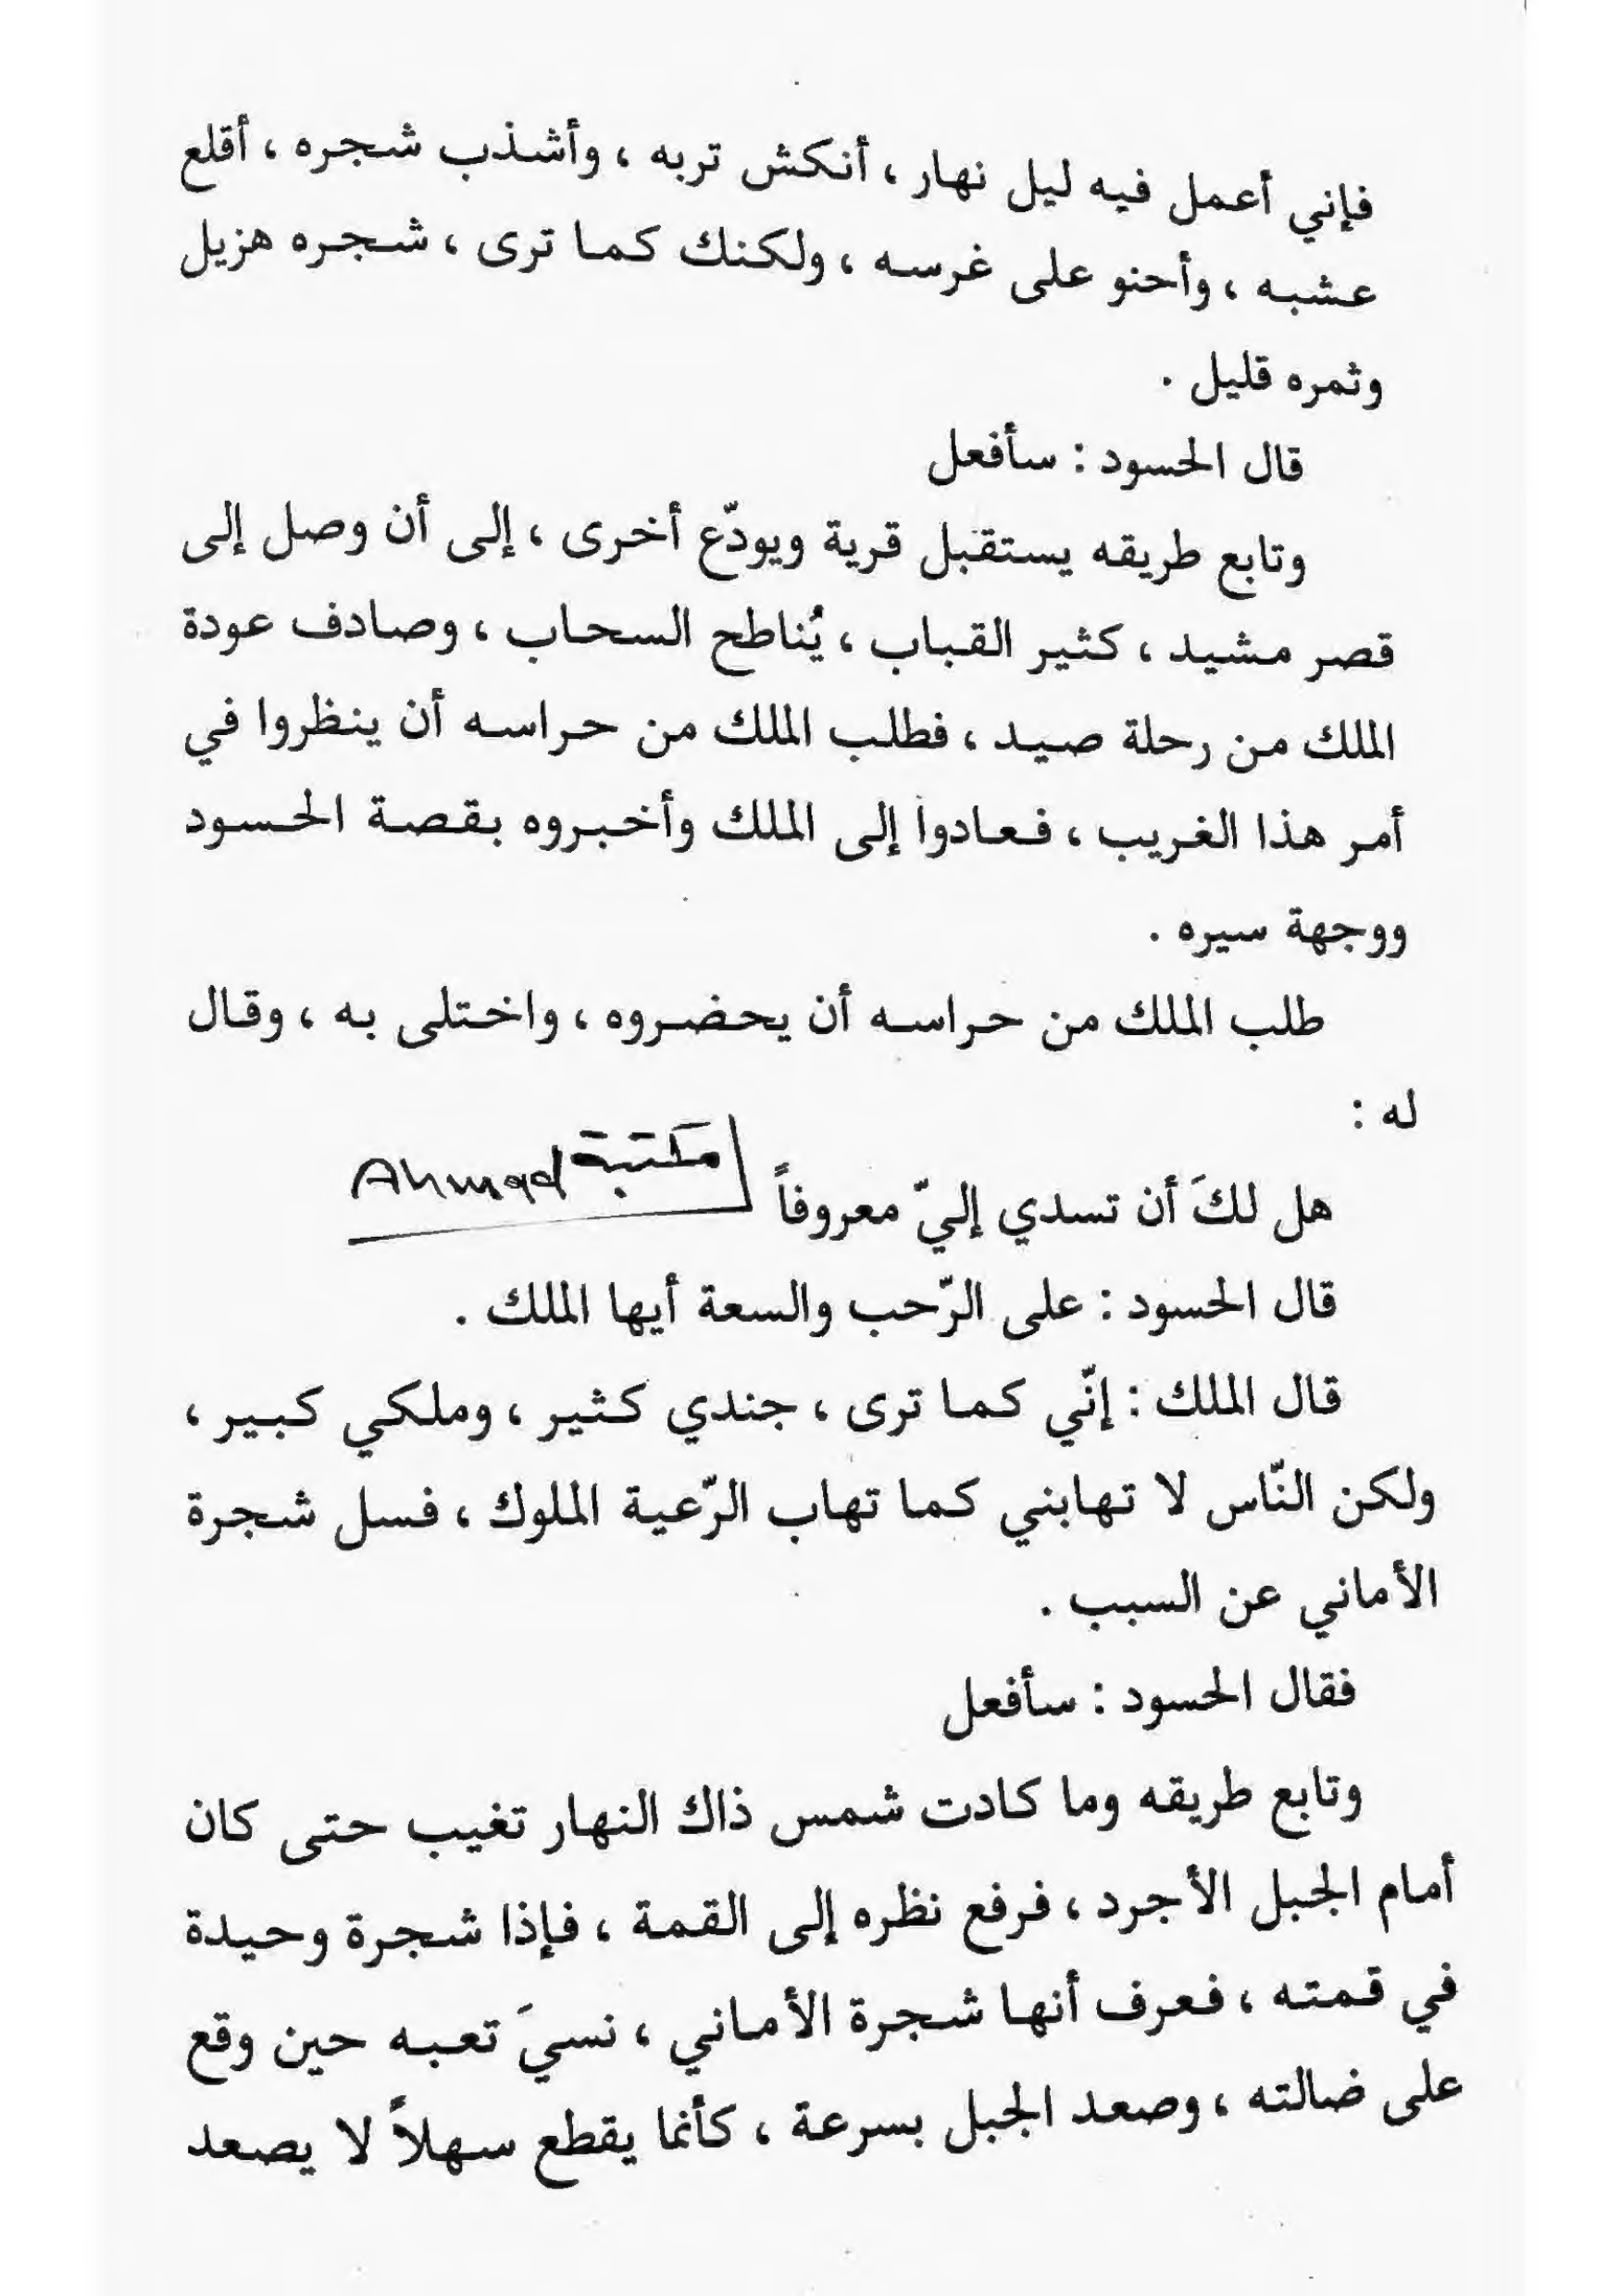 فإني أعمل فيه ليل نهار ، أنكش تربه ، وأشذب شجره ، أقلع
عشبه ، وأحنو على غرسه ، ولكنك كما ترى ، شجره هزيل
وثمره قليل .
قال الحسود : سأفعل
وتابع طريقه يستقبل قرية ويودّع أخرى ، إلى أن وصل إلى
قصر مشيد ، كثير القباب ، يُناطح السحاب ، وصادف عودة
الملك من رحلة صيد ، فطلب الملك من حراسه أن ينظروا في
أمر هذا الغريب ، فعادوا إلى الملك وأخبروه بقصة الحسود
ووجهة سيره .
طلب الملك من حراسه أن يحضروه ، واختلى به ، وقال
له :
هل لكَ أن تسدي إليّ معروفاً
مكتبة Ahmad
قال الحسود : على الرّحب والسعة أيها الملك .
قال الملك : إنّي كما ترى ، جندي كثير ، وملكي كبير ،
ولكن النّاس لا تهابني كما تهاب الرّعية الملوك ، فسل شجرة
الأماني عن السبب .
فقال الحسود : سأفعل
وتابع طريقه وما كادت شمس ذاك النهار تغيب حتى كان
أمام الجبل الأجرد ، فرفع نظره إلى القمة ، فإذا شجرة وحيدة
في قمته ، فعرف أنها شجرة الأماني ، نسيَ تعبه حين وقع
على ضالته ، وصعد الجبل بسرعة ، كأنما يقطع سهلاً لا يصعد